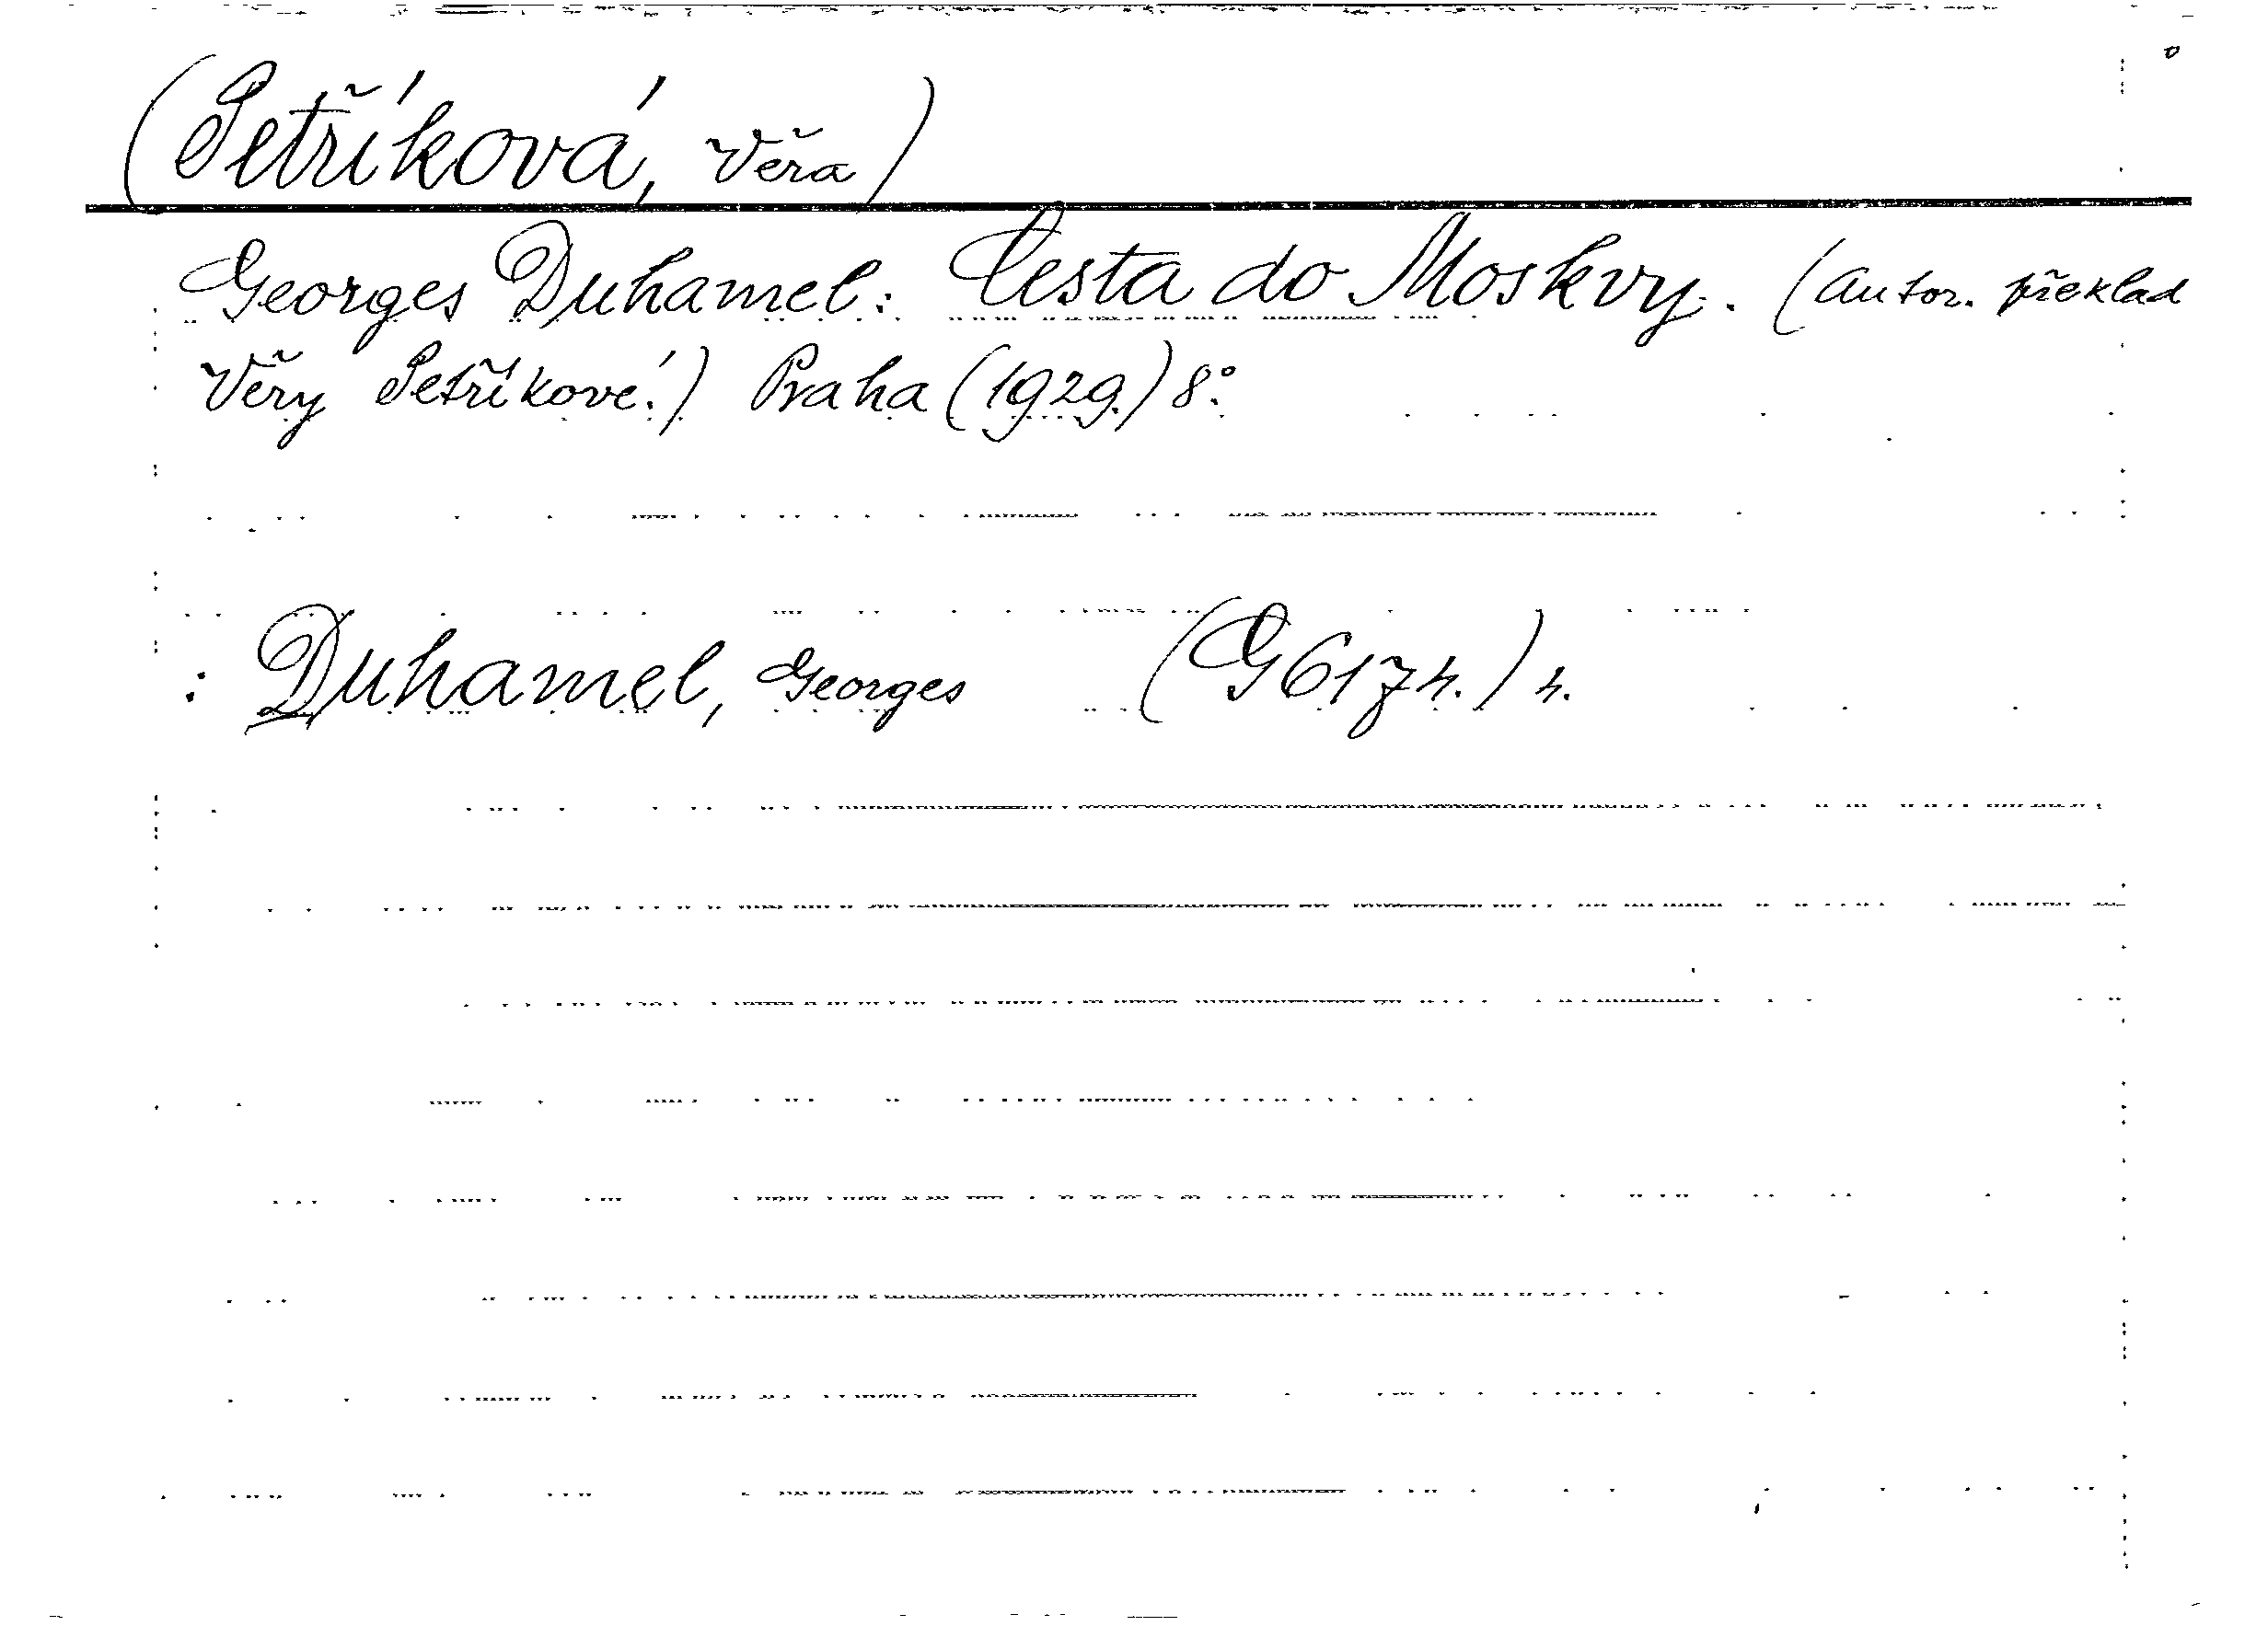 (Petříková, Věra)
Georges Duhamel: Cesta do Moskvy. (Autor. překlad
Věry Petříkové.) Praha (1929.) 8°.
: Duhamel, Georges (G 6174.) 4.